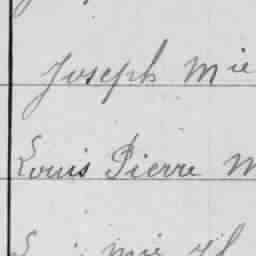 Joseph Mie
Louis Pierre M